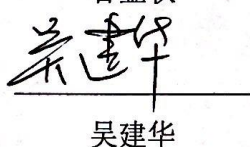 吴建华
吴建华